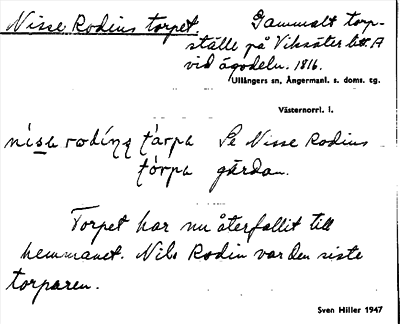 Nisse Rodins torpet
Gammalt torp-
ställe på Viksäter litt. A
vid ägodeln. 1816.
Ullångers sn, Ångermanl. s. doms. tg.
Västernorrl. l.
Se Nisse Rodins
gärdan.
Torpet har nu återfallit till
hemmanet. Nils Rodin var den siste
torparen.
Sven Hiller 1947